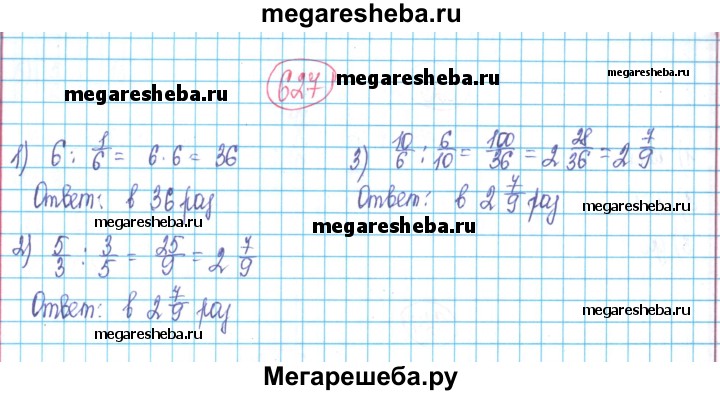 megaresheba.ru
627
megaresheba.ru
megaresheba.ru
megaresheba.ru
1) 6 : 1/6 = 6 · 6 = 36
Ответ: в 36 раз
megaresheba.ru
3) 10/6 : 6/10 = 100/36 = 2 28/36 = 2 7/9
Ответ: в 2 7/9 раз
megaresheba.ru
megaresheba.ru
2) 5/3 : 3/5 = 25/9 = 2 7/9
Ответ: в 2 7/9 раз
megaresheba.ru
megaresheba.ru
Мегарешеба.ру